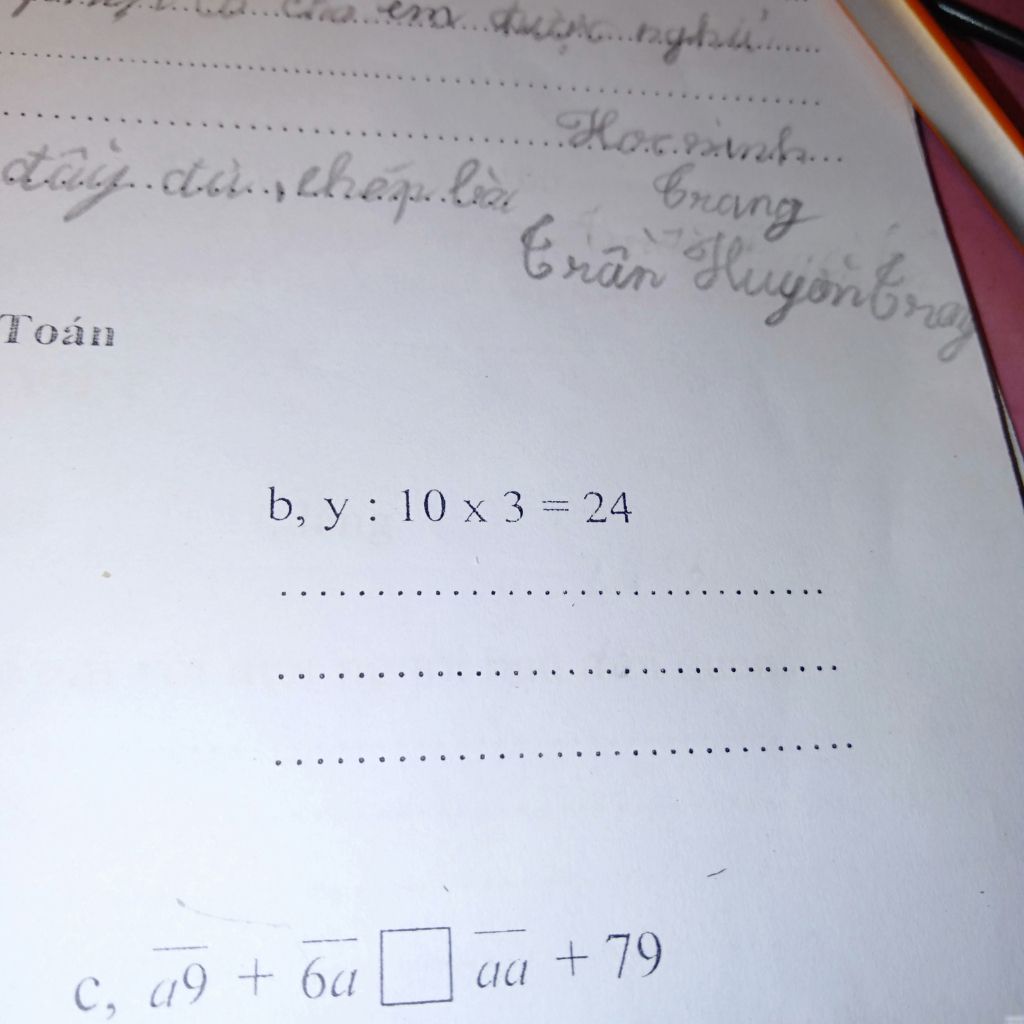 em được nghỉ
Học sinh
đầy đủ, chép bài Trang
Trần Huyền Trang
Toán
b, y : 10 x 3 = 24
c, a̅9̅ + 6̅a̅ □ a̅a̅ + 79